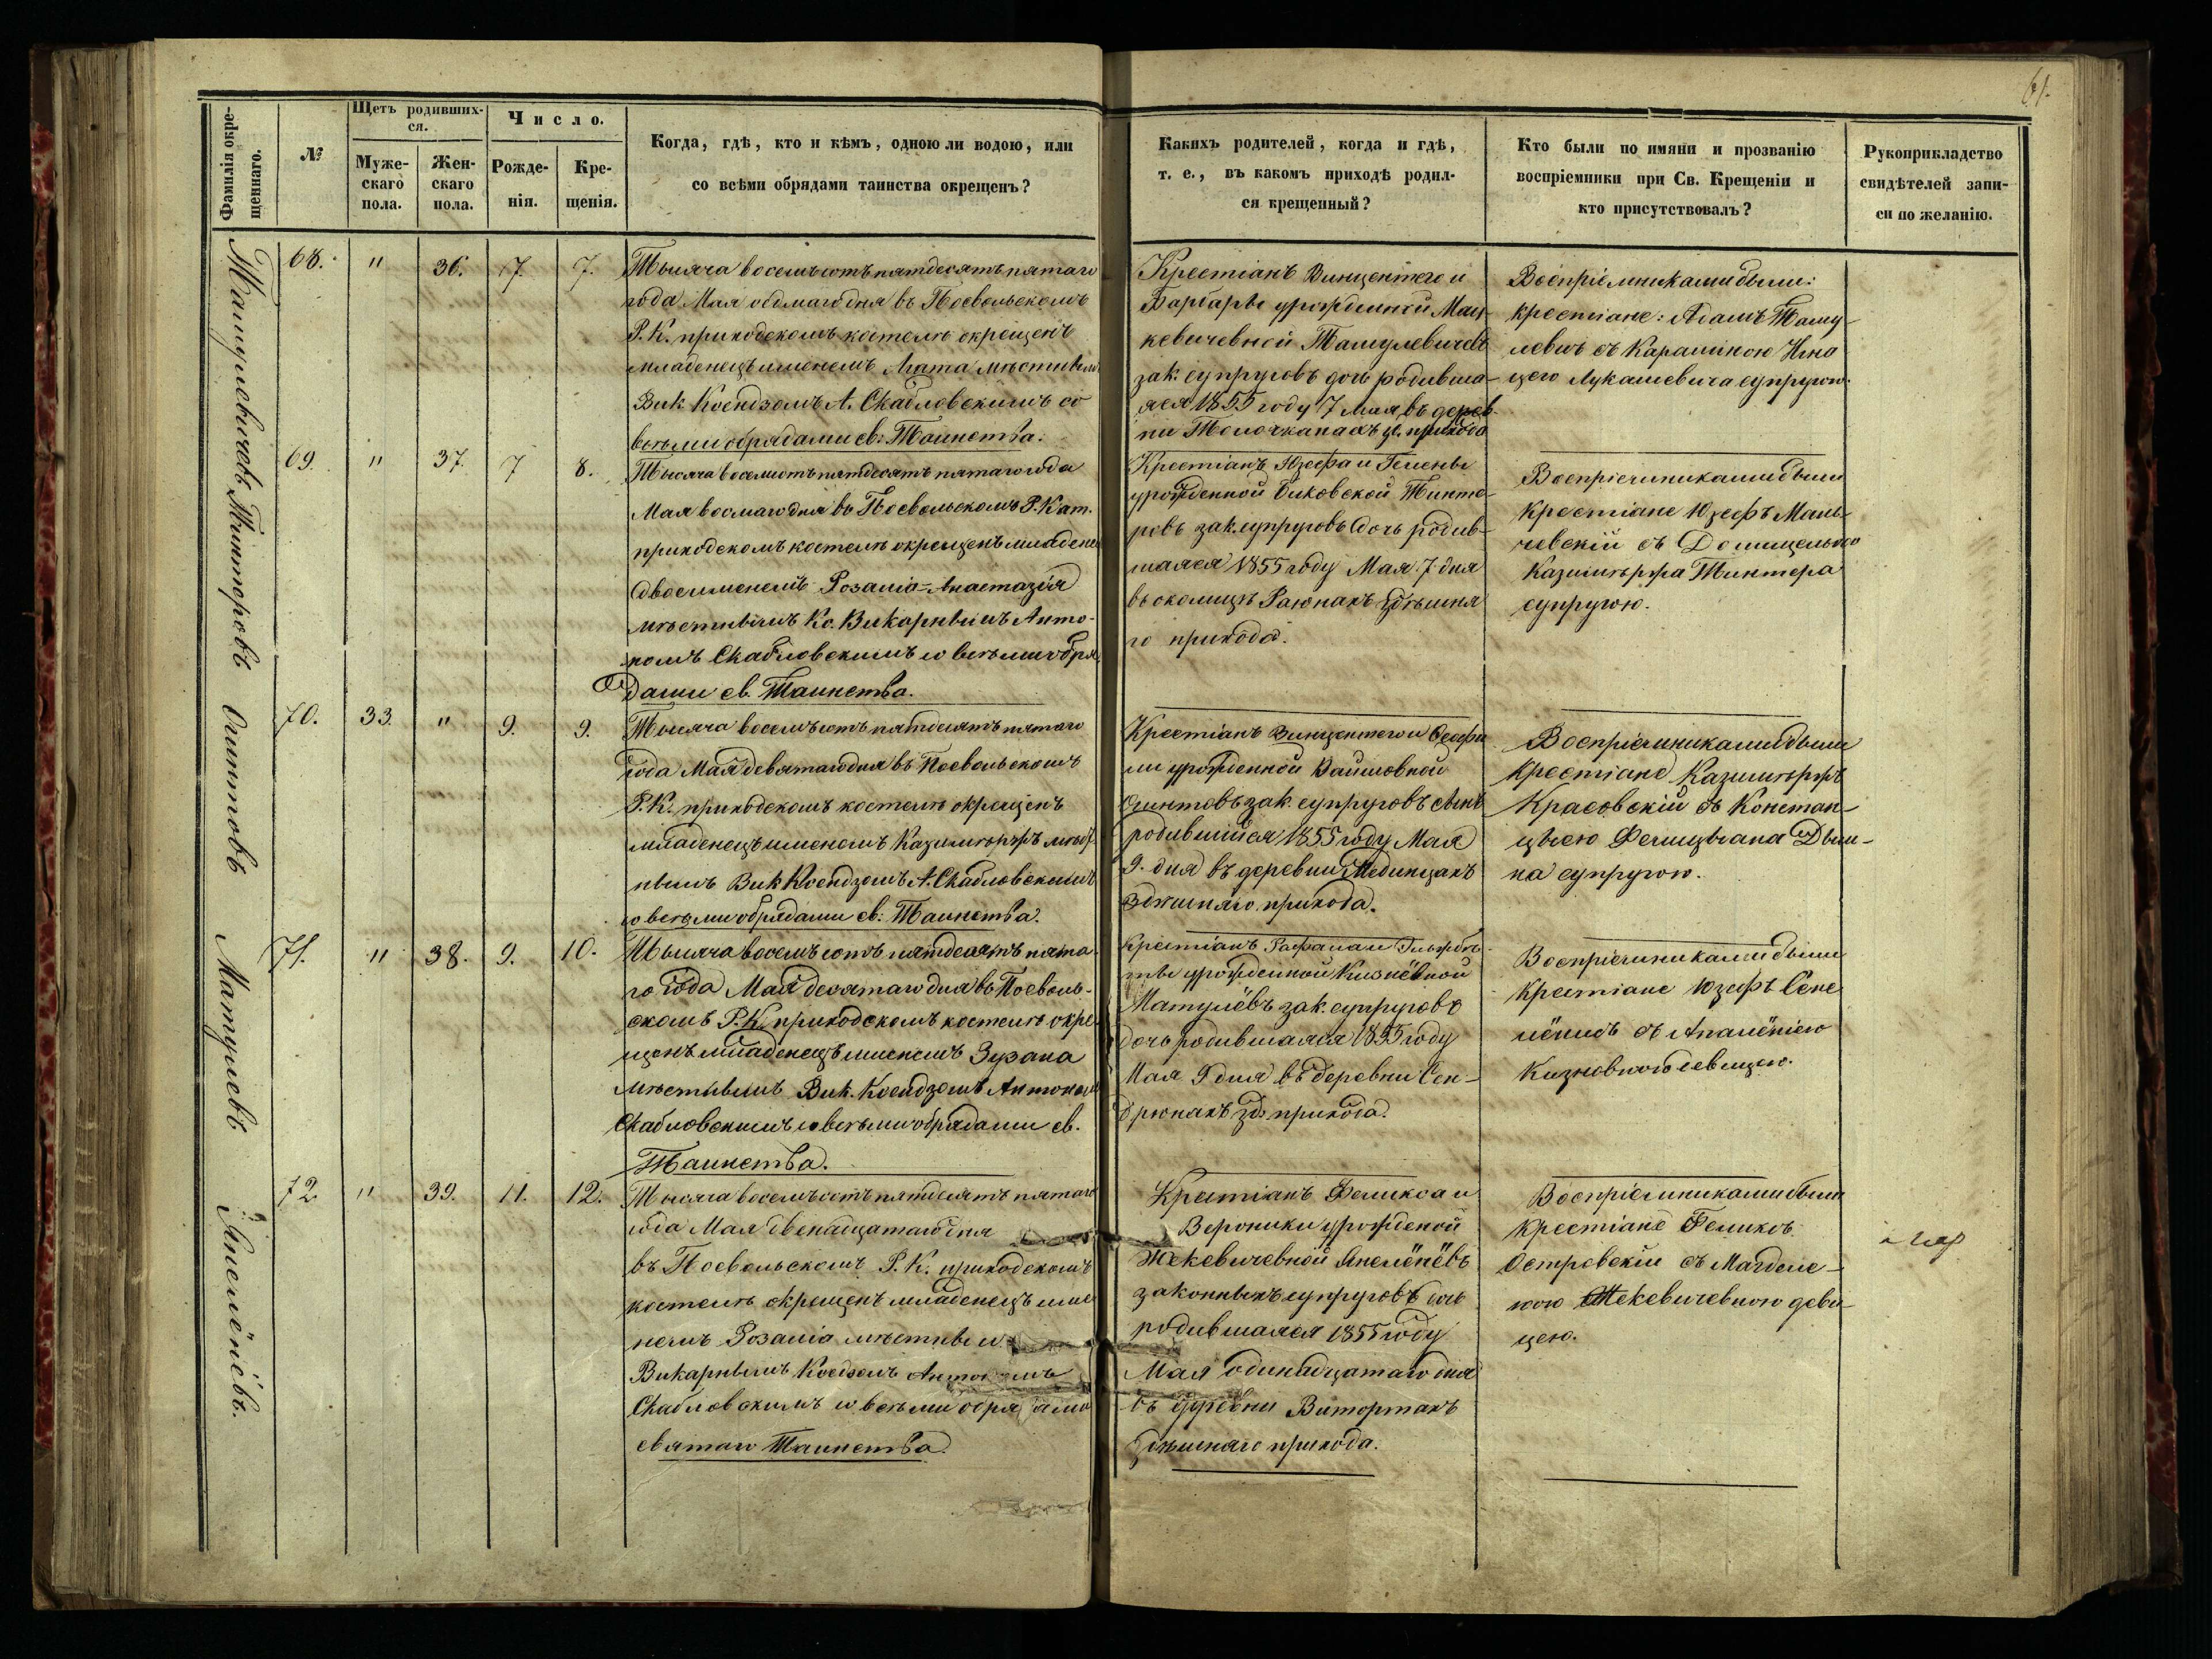 61.
Фамилія окре-
щеннаго.
№
Щетъ родивших-
ся.
Муже-
скаго
пола.
Жен-
скаго
пола.
Число.
Рожде-
нія.
Кре-
щенія.
Когда, гдѣ, кто и кѣмъ, одною ли водою, или
со всѣми обрядами таинства окрещенъ?
Какихъ родителей, когда и гдѣ,
т. е., въ какомъ приходѣ родил-
ся крещенный?
Кто были по имяни и прозванію
воспріемники при Св. Крещеніи и
кто присутствовалъ?
Рукоприкладство
свидѣтелей запи-
си по желанію.
68. " 36. 7. 7.
Тысяча восемьсотъ пятдесятъ пятаго
года Мая седмаго дня въ Посвольскомъ
Р. К. приходскомъ костелѣ окрещенъ
младенецъ именемъ Агата мѣстнымъ
Вик. Ксендзомъ А. Скабловскимъ со
всѣми обрядами св: Таинства.
Крестіанъ Винцентего и
Барбары урожденной Мац-
кевичевной Тамулевичевъ
зак. супруговъ дочь родивша-
яся 1855 году 7 Мая, въ дерев-
ни прихода
Воспріемниками были:
крестіане: Адамъ Таму-
левичъ съ Каралиною Игна
цего Лукашевича супругою.
Тамулевичевъ
69. " 37. 7 8.
Тысяча восемсотъ пятдесятъ пятаго года
Мая восмаго дня въ Посвольскомъ Р. Кат.
приходскомъ костелѣ окрещенъ младенец
двоеименемъ Розалія-Анастазія
мѣстнымъ Кс. Викарнымъ Анто-
номъ Скабловскимъ со всѣми обря
дами св. Таинства.
Крестіанъ Юзефа и Гелены
урожденной Биковской Тинто-
ровъ зак. супруговъ дочь родив-
шаяся 1855 году Мая 7 дня
въ околицѣ Раюнахъ здѣшня
го прихода.
Воспріемниками были
Крестіане Юзефъ Маль-
чевскій съ Домицелею
Казимѣржа Тинтера
супругою.
Тинторовъ
70. 33. " 9. 9.
Тысяча восемьсотъ пятдесятъ пятаго
года Мая девятаго дня въ Посвольскомъ
Р. К. приходскомъ костелѣ окрещенъ
младенецъ именемъ Казимѣржъ мѣст
нымъ Вик Ксендзомъ А. Скабловскимъ
со всѣми обрядами св: Таинства.
Крестіанъ Винцентего и Теофи
ли урожденной Вайшовной
Огинтовъ зак. супруговъ сынъ
родившійся 1855 году Мая
9. дня въ деревни Мединцахъ
здѣшняго прихода.
Воспріемниками были
Крестіане Казимѣржъ
Красовскій съ Констан-
цыею Фелицыана Дыш-
на супругою.
Огинтовъ
71. " 38. 9. 10.
Тысяча восемьсотъ пятдесятъ пята
го года Мая десятаго дня въ Посволь-
скомъ Р. К. приходскомъ костелѣ окре
щенъ младенецъ именемъ Зузана
мѣстнымъ Вик. Ксендзомъ Антономъ
Скабловскимъ со всѣми обрядами св.
Таинства.
Крестіанъ Рафала и Эльжбѣ-
ты урожденной Кизнёвной
Матулёвъ зак. супруговъ
дочь родившаяся 1855 году
Мая 9 дня въ деревни Сен-
дрюнахъ зд. прихода.
Воспріемниками были
Крестіане Юзефъ Сене
съ Апалёніею
Кизновною девицею.
Матулевъ
72. " 39. 11. 12.
Тысяча восемьсотъ пятдесятъ пятаго
года Мая двенадцатаго дня
въ Посвольскомъ Р. К. приходскомъ
костелѣ окрещенъ младенецъ име
немъ Розалія мѣстнымъ
Викарнымъ Ксендзомъ Антономъ
Скабловскимъ со всѣми обрядами
святаго Таинства.
Крестіанъ Феликса и
Вероники урожденой
Жекевичевной Янелёнёвъ
законныхъ супруговъ дочь
родившаяся 1855 году
Мая одинадцатаго дня
въ деревни Витортахъ
здѣшняго прихода.
Воспріемниками были
Крестіане Феликсъ
Островскій съ Магдале-
ною Жекевичевною деви-
цею.
Янелёнёвъ.